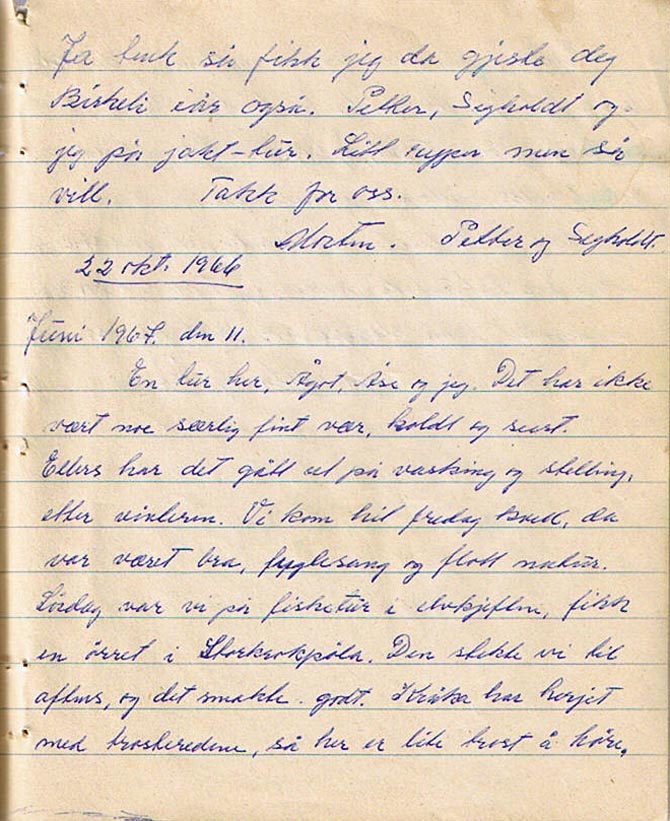 Ja tenk så fikk jeg da gjeste deg
Birkeli i år også. Petter, Sigholdt og
jeg på jakt-tur. Litt ryper men så
vill. Takk for oss.
Morten. Petter og Sigholdt.
22 okt. 1966
Juni 1967. den 11.
En tur her, Ågot, Åse og jeg. Det har ikke
vært noe særlig fint vær, koldt og surt.
Ellers har det gått ut på vasking og stelling,
etter vinteren. Vi kom hit fredag kveld, da
var været bra, fuglesang og flott natur.
Lördag var vi på fisketur i elvkjeften, fikk
en örret i Storkrokpöla. Den stekte vi til
aftens, og det smakte godt. Kråka har herjet
med trosteredene, så her er lite trost å höre,